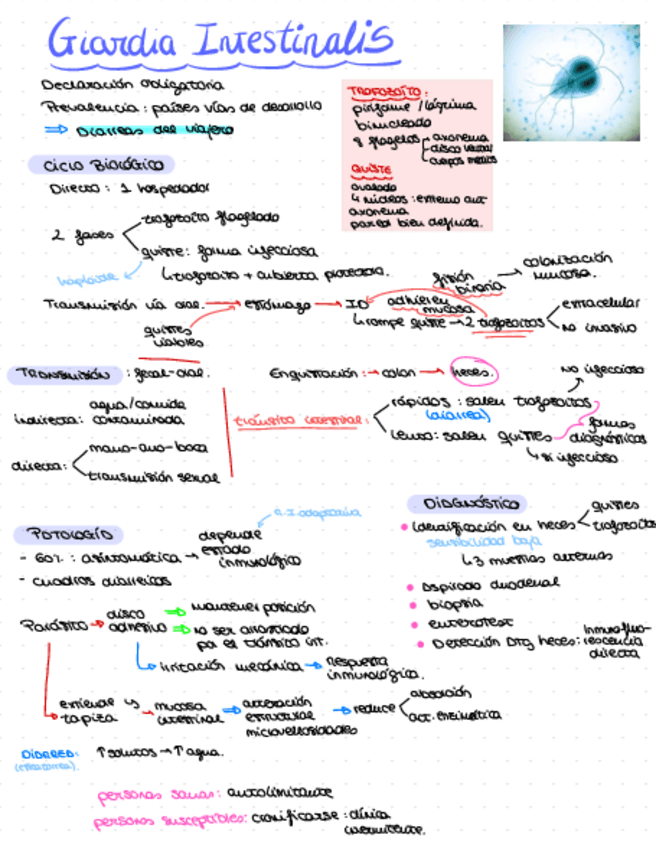 Giardia Intestinalis
Declaración obligatoria
Prevalencia: países vías de desarrollo
⇒ Diarreas del viajero
TROFOZOÍTO:
piriforme / lágrima
binucleado
8 flagelos
axonema
disco ventral
cuerpos medios
QUISTE
ovalado
4 núcleos: extremo
axonema
pared bien definida.
Ciclo Biológico
Directo: 1 hospedador
2 fases
trofozoíto flagelado
quiste: forma infecciosa
↳ trofozoíto + cubierta protectora.
Transmisión vía oral. → estómago → ID
quistes viables
adhieren mucosa
fisión binaria → colonización mucosa.
↳ rompe quiste → 2 trofozoítos
extracelular
no invasivo
TRANSMISIÓN: fecal-oral.
indirecta: agua/comida contaminada
directa:
mano-ano-boca
transmisión sexual
Enquistación: → colon → heces.
tránsito intestinal:
rápidos: salen trofozoítos
(diarrea)
no infeccioso
lento: salen quistes
formas diagnósticas
↳ sí infeccioso
PATOLOGÍA
- 60%: asintomática → depende estado inmunológico
R.I adaptativa
- cuadros diarreicos
Parásito → disco adhesivo
⇒ mantener posición
⇒ no ser arrastrado
por el tránsito int.
irritación mecánica → respuesta inmunológica.
tapiza → mucosa intestinal ⇒ alteración estructural microvellosidades → reduce
absorción
act. enzimática
DIARREA:
↑ solutos → ↑ agua.
personas sanas: autolimitante
personas susceptibles: cronificarse: clínica intermitente.
DIAGNÓSTICO
• Identificación en heces
quistes
trofozoítos
sensibilidad baja
↳ 3 muestras alternas
• Aspirado duodenal
• biopsia
• enterotest
• Detección Atg heces: inmunofluorescencia directa